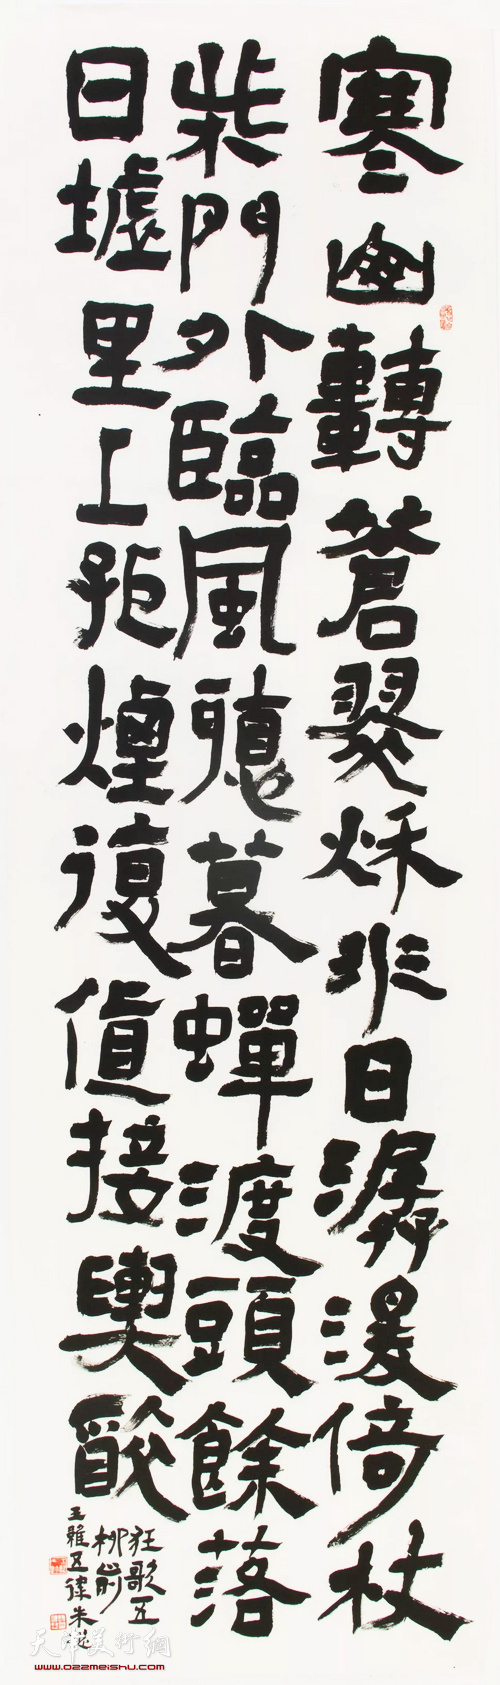 寒山轉蒼翠秋水日潺湲倚杖
柴門外臨風聽暮蟬渡頭餘落
日墟里上孤煙復值接輿醉
狂歌五
柳前
王維五律朱
天津美術網
www.022meishu.com